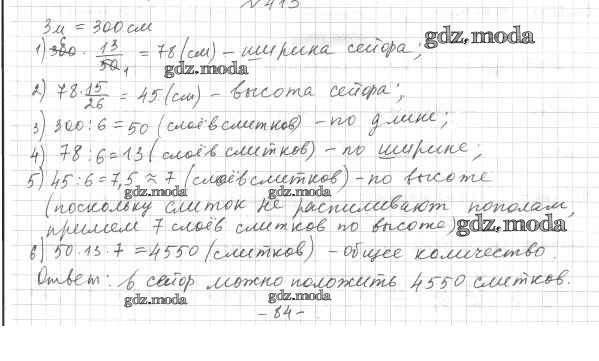 №413
3м = 300 см
gdz.moda
1) 300 · 13/50 = 78 (см) – ширина сейфа;
gdz.moda
2) 78 · 15/26 = 45 (см) – высота сейфа;
3) 300 : 6 = 50 (слоёв слитков) – по длине;
4) 78 : 6 = 13 (слоёв слитков) – по ширине;
5) 45 : 6 = 7,5 ≈ 7 (слоёв слитков) – по высоте
gdz.moda gdz.moda
(поскольку слиток не распиливают пополам,
примем 7 слоёв слитков по высоте)
gdz.moda
6) 50 · 13 · 7 = 4550 (слитков) – общее количество.
Ответ: в сейф можно положить 4550 слитков.
gdz.moda gdz.moda
– 84 –